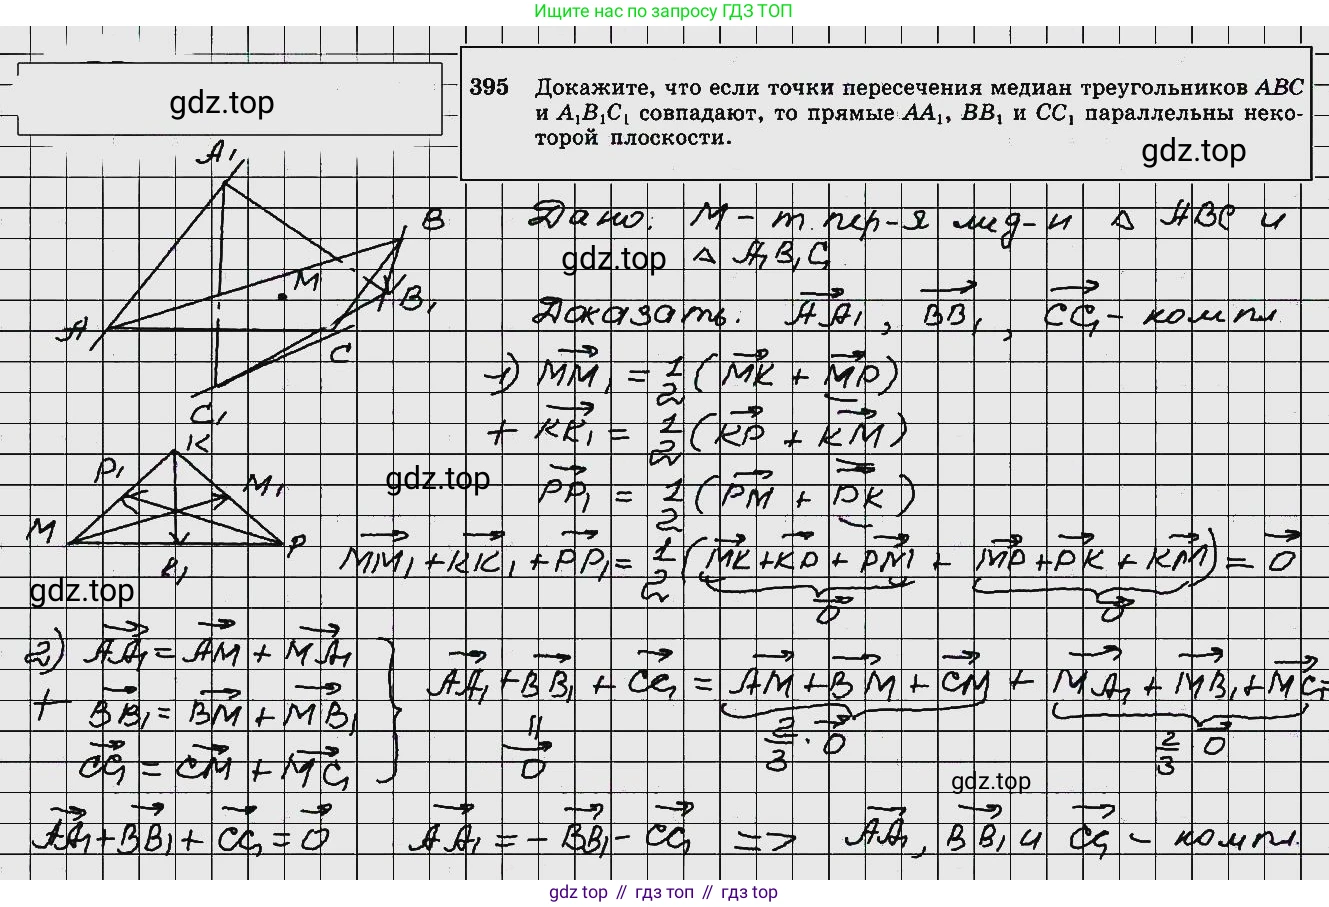 Ищите нас по запросу ГДЗ ТОП
gdz.top
395 Докажите, что если точки пересечения медиан треугольников ABC
и A₁B₁C₁ совпадают, то прямые AA₁, BB₁ и CC₁ параллельны неко-
торой плоскости.
gdz.top
A₁
B
M
B₁
A
C
C₁
Дано: M – т. пер-я мед-н △ ABC и
gdz.top △ A₁B₁C₁
Доказать: AA₁, BB₁, CC₁ – компл.
1) MM₁ = 1/2 (MK + MP)
+ KK₁ = 1/2 (KP + KM)
PP₁ = 1/2 (PM + PK)
K
P₁
M₁
M
P
K₁
gdz.top
MM₁ + KK₁ + PP₁ = 1/2 (MK + KP + PM + MP + PK + KM) = 0
0 0
gdz.top
2) AA₁ = AM + MA₁
+ BB₁ = BM + MB₁
CC₁ = CM + MC₁
AA₁ + BB₁ + CC₁ = AM + BM + CM + MA₁ + MB₁ + MC₁ =
=
0
2/3 · 0
2/3 0
gdz.top
AA₁ + BB₁ + CC₁ = 0 AA₁ = – BB₁ – CC₁ => AA₁, BB₁ и CC₁ – компл.
gdz top // гдз топ // gdz top